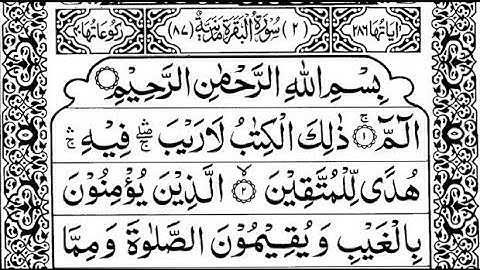 اٰيَاتُهَا ٢٨٦ (٢) سُوْرَةُ الْبَقَرَةِ مَدَنِيَّةٌ (٨٧) رُكُوْعَاتُهَا ٤٠
بِسْمِ اللهِ الرَّحْمٰنِ الرَّحِيْمِ
الٓمّٓ ۚ ١ ذٰلِكَ الْكِتٰبُ لَا رَيْبَ ۛۖ فِيْهِ ۛۚ
هُدًى لِّلْمُتَّقِيْنَ ۙ ٢ الَّذِيْنَ يُؤْمِنُوْنَ
بِالْغَيْبِ وَ يُقِيْمُوْنَ الصَّلٰوةَ وَ مِمَّا